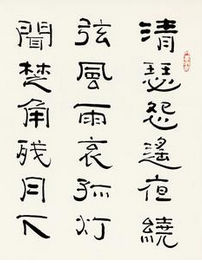 清瑟怨遙夜繞
弦風雨哀孤灯
聞楚角残月下